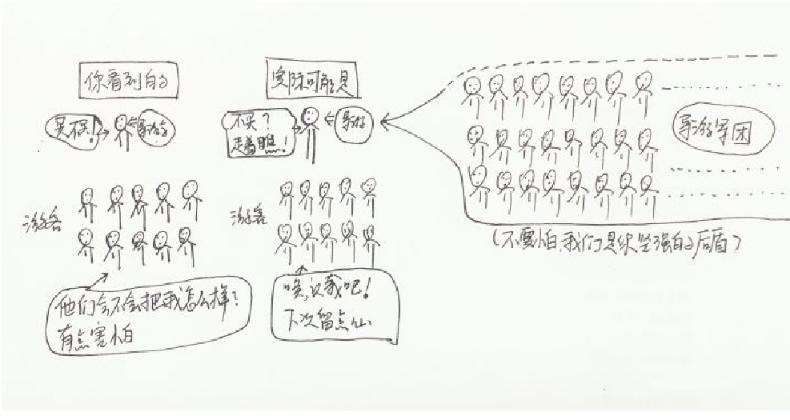 你看到的
实际可能是
导游
不买?
走着瞧!
导游
导游军团
(不要怕,我们是你坚强的后盾)
游客
游客
他们会不会把我怎么样?
有点害怕
唉,认栽吧!
下次留点心